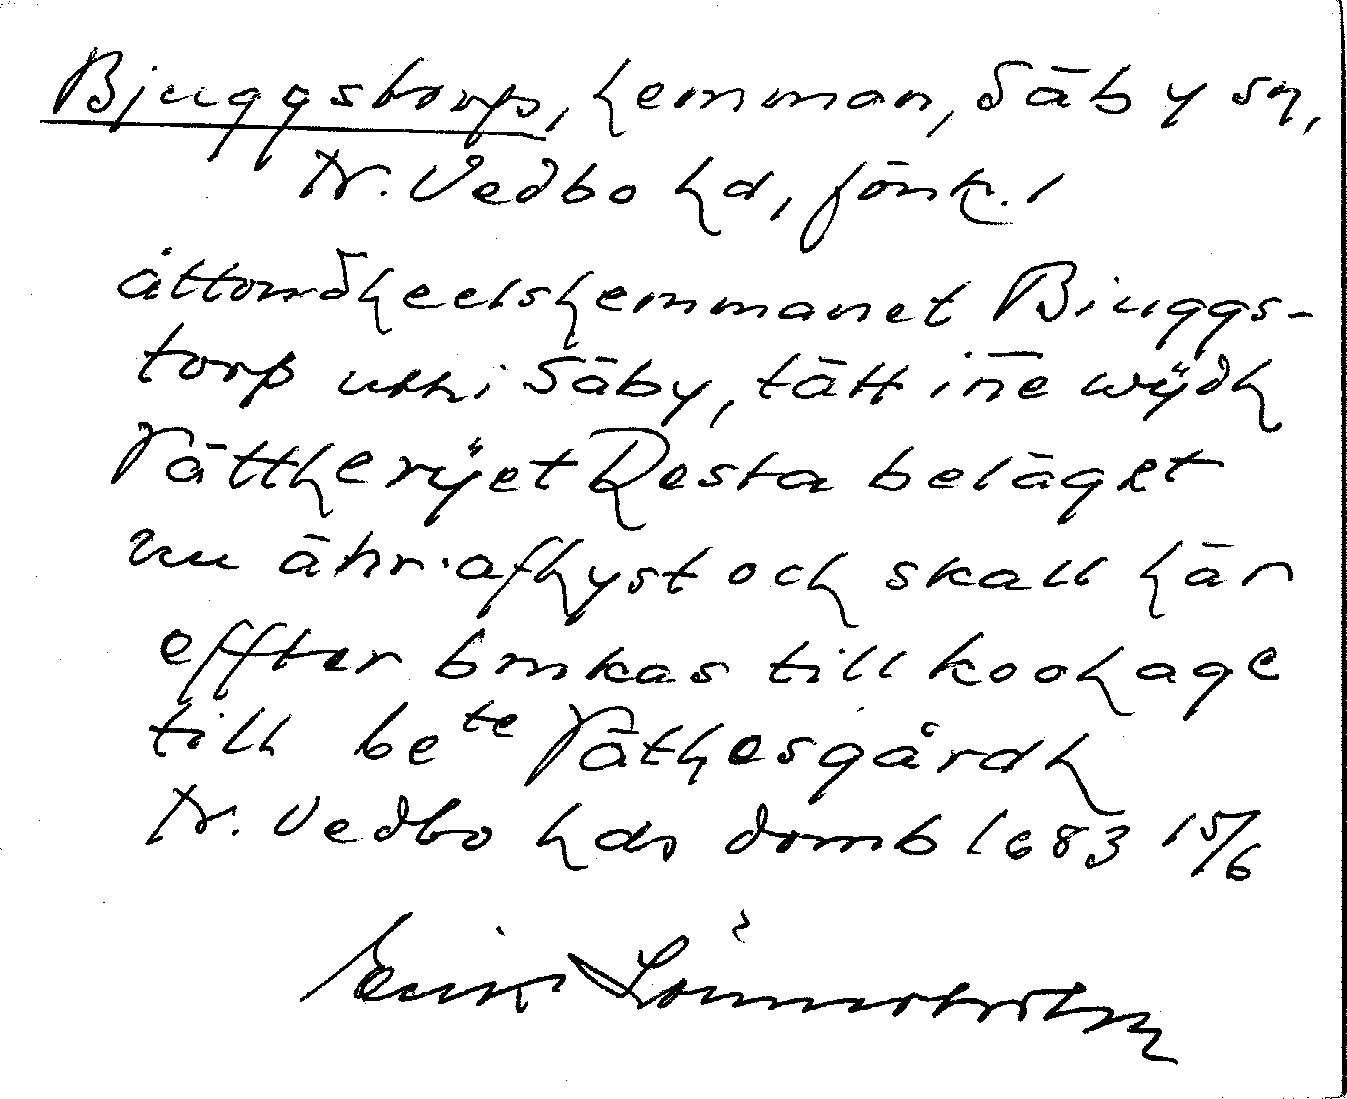 Bjuggstorp, hemman, Säby sn,
N. Vedbo hd, Jönk. l
åttondheelshemmanet Biuggs-
torp uthi Säby, tätt iñe wÿdh
Sätherÿet Resta beläget
nu ähr afhyst och skall här
effter brukas till koohage
till bete Säthesgårdh
N. Vedbo hds domb 1683 15/6
Erik Lönnerholm